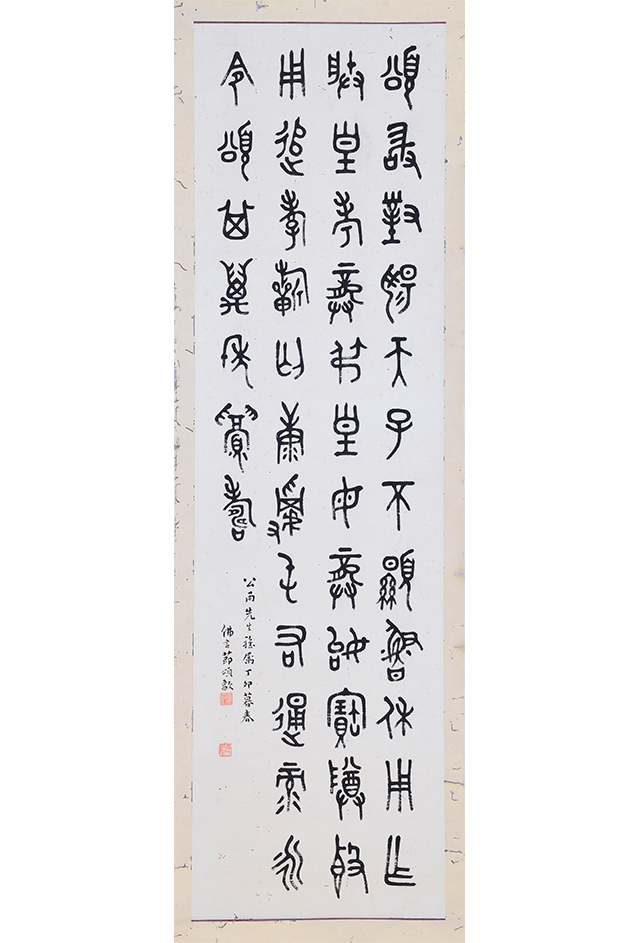 頌敢對揚天子不顯魯休用乍
朕皇考龏弔皇母龏姒寶尊𣪘
用追孝祈匄康𩛥屯右通彔永
令頌其萬年眉壽
公雨先生雅屬丁卯暮春
佛言節頌敦